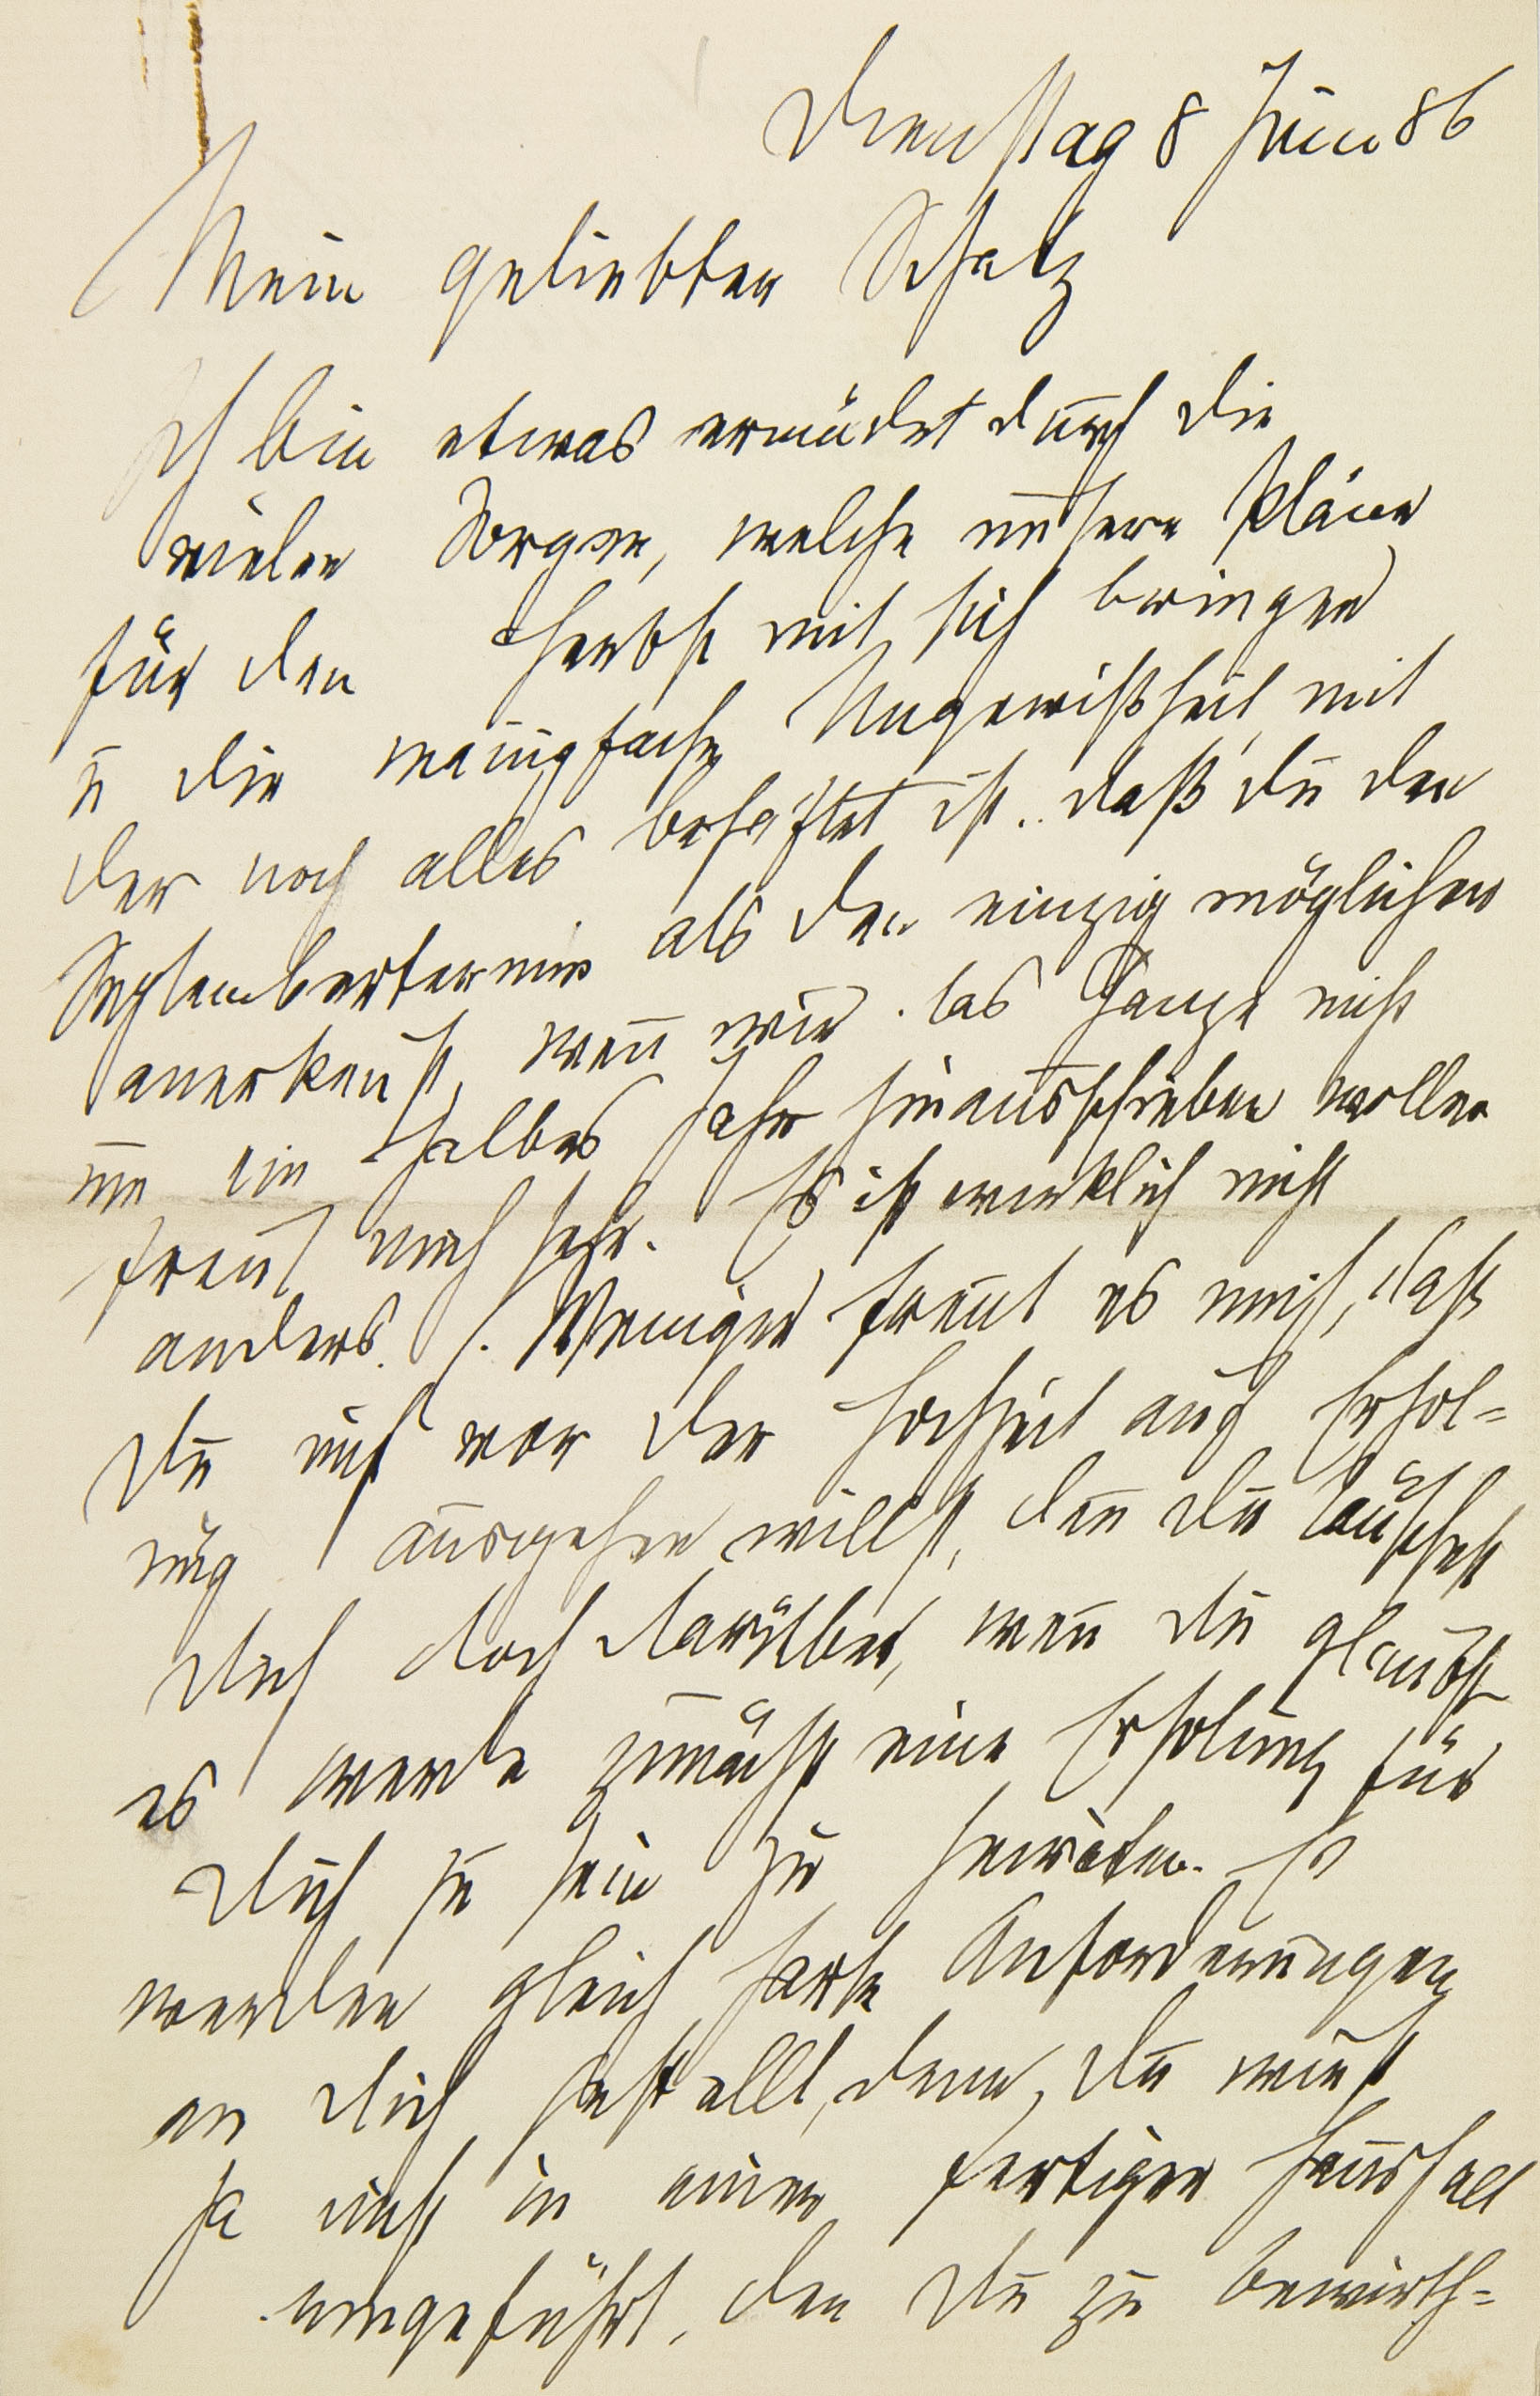 Dienstag 8 Juni 86
Mein geliebter Schatz
Ich bin etwas ermüdet durch die
vielen Sorgen, welche unsere Pläne
für den Herbst mit sich bringen
u die mannigfache Ungewißheit, mit
der noch alles behaftet ist. daß du den
Septembertermin als den einzig möglichen
anerkenst, wen̄ wir das Ganze nicht
um ein halbes Jahr hinausschieben wollen
freut mich sehr. Es ist wirklich nicht
anders. Weniger freut es mich, daß
Du nicht vor der Hochzeit auf Erhol-
ung ausgehen willst, den̄ Du täuschest
Dich doch darüber, wen̄ Du glaubst
es werde zunächst eine Erholung für
Dich zu sein zu heiraten. Es
werden gleich harte Anforderungen
an Dich gestellt, denn Du wirst
ja nicht in einen fertigen Haushalt
eingeführt, den Du zu bewirth-